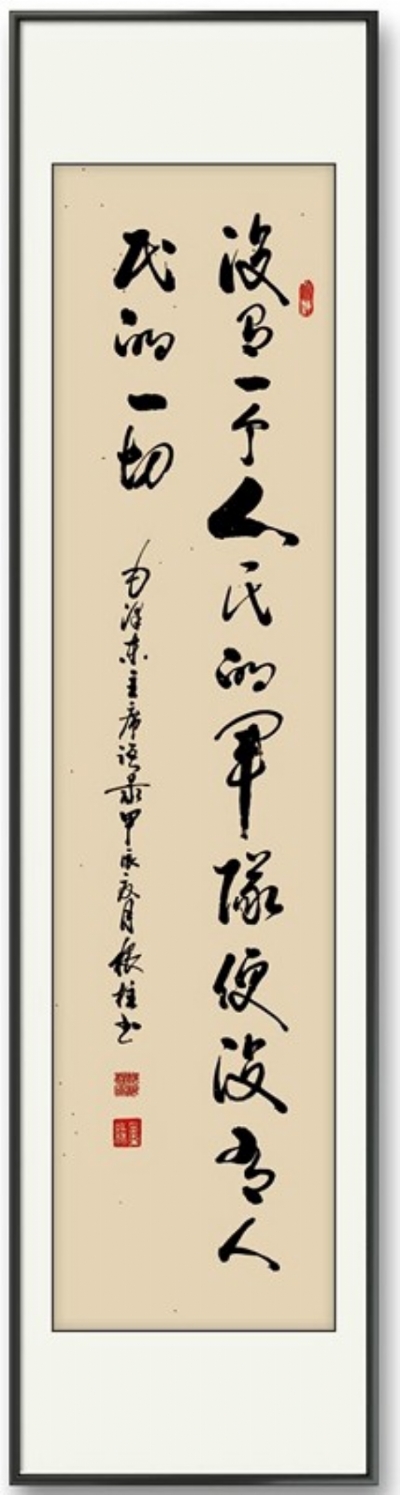 没有一个人民的军队便没有人
民的一切
毛泽东主席语录甲辰夏月根柱书